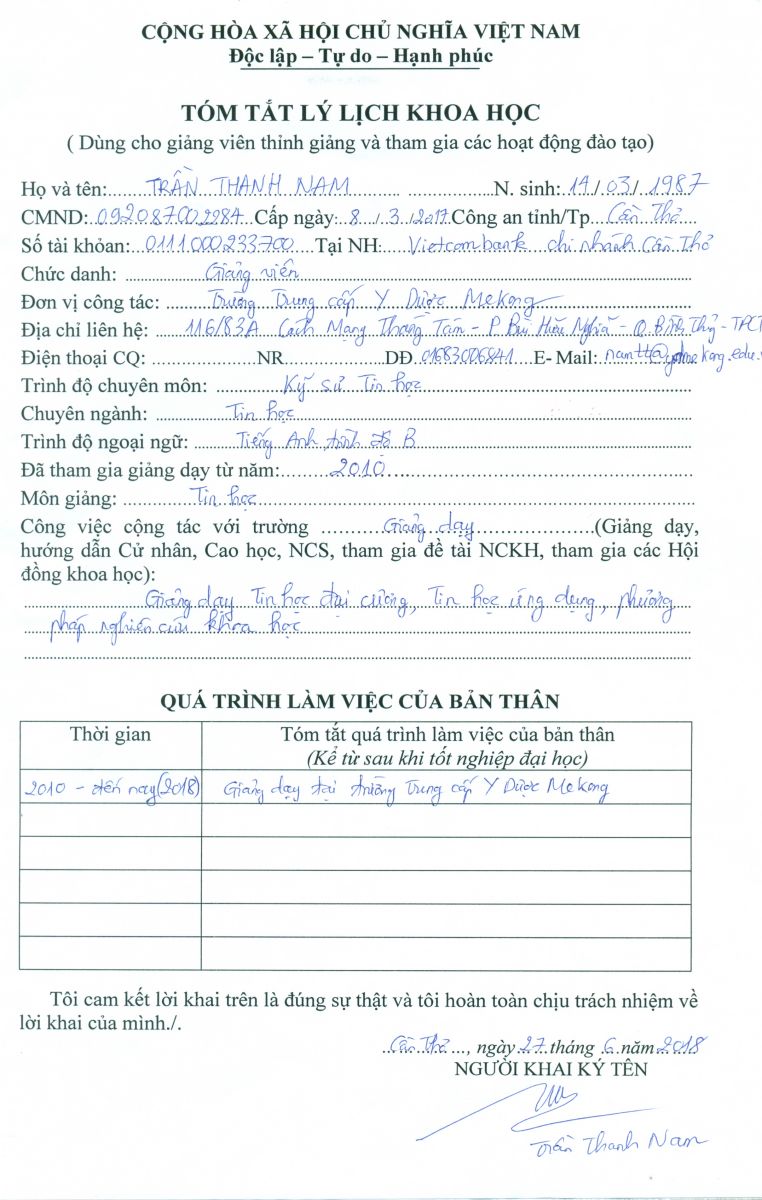 CỘNG HÒA XÃ HỘI CHỦ NGHĨA VIỆT NAM
Độc lập – Tự do – Hạnh phúc
TÓM TẮT LÝ LỊCH KHOA HỌC
( Dùng cho giảng viên thỉnh giảng và tham gia các hoạt động đào tạo)
Họ và tên: TRẦN THANH NAM N. sinh: 14/03/1987
CMND: 092087002984 Cấp ngày: 8/3/2017 Công an tỉnh/Tp Cần Thơ
Số tài khỏan: 0111000233700 Tại NH: Vietcombank chi nhánh Cần Thơ
Chức danh: Giảng viên
Đơn vị công tác: Trường Trung cấp Y Dược Mekong
Địa chỉ liên hệ: 116/83A Cách Mạng Tháng Tám - P Bùi Hữu Nghĩa - Q. Bình Thủy - TPCT
Điện thoại CQ: NR DĐ 01683006841 E- Mail:
Trình độ chuyên môn: Kỹ sư Tin học
Chuyên ngành: Tin học
Trình độ ngoại ngữ: Tiếng Anh trình độ B
Đã tham gia giảng dạy từ năm: 2010
Môn giảng: Tin học
Công việc cộng tác với trường Giảng dạy (Giảng dạy,
hướng dẫn Cử nhân, Cao học, NCS, tham gia đề tài NCKH, tham gia các Hội
đồng khoa học):
Giảng dạy Tin học đại cương, Tin học ứng dụng, phương
pháp nghiên cứu khoa học
QUÁ TRÌNH LÀM VIỆC CỦA BẢN THÂN
Thời gian Tóm tắt quá trình làm việc của bản thân
(Kể từ sau khi tốt nghiệp đại học)
2010 - đến nay (2018) Giảng dạy tại trường Trung cấp Y Dược Mekong
Tôi cam kết lời khai trên là đúng sự thật và tôi hoàn toàn chịu trách nhiệm về
lời khai của mình./.
Cần Thơ, ngày 27 tháng 6 năm 2018
NGƯỜI KHAI KÝ TÊN
Trần Thanh Nam